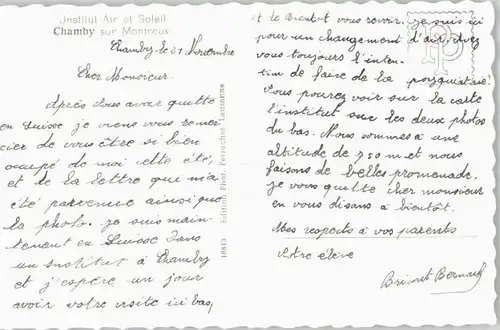 Institut Air et Soleil
Chamby sur Montreux
Chamby le 21 Novembre
Cher Monsieur.
Après vous avoir quitté
en Suisse je viens vous remer
cier de vous être si bien
occupé de moi cette été,
et de la lettre qui m'a
été parvenue ainsi que
la photo. je suis main-
tenent en Suisse dans
un institut à Chamby
et j'espère un jour
avoir votre visite ici bas,
10843 Edition Phot. Perrochet Lausanne
et te bientot vous revoir. je suis ici
pour un changement d'air. Avez
vous toujours l'inten-
tion de faire de la
Vous pourez voir sur la carte
l'institut sur les deux photos
du bas. Nous sommes à une
altitude de 750 m. et nous
faisons de belles promenade.
je vous quitte cher monsieur
en vous disans à bientôt.
Mes respects à vos parents
Votre élève
Bernard